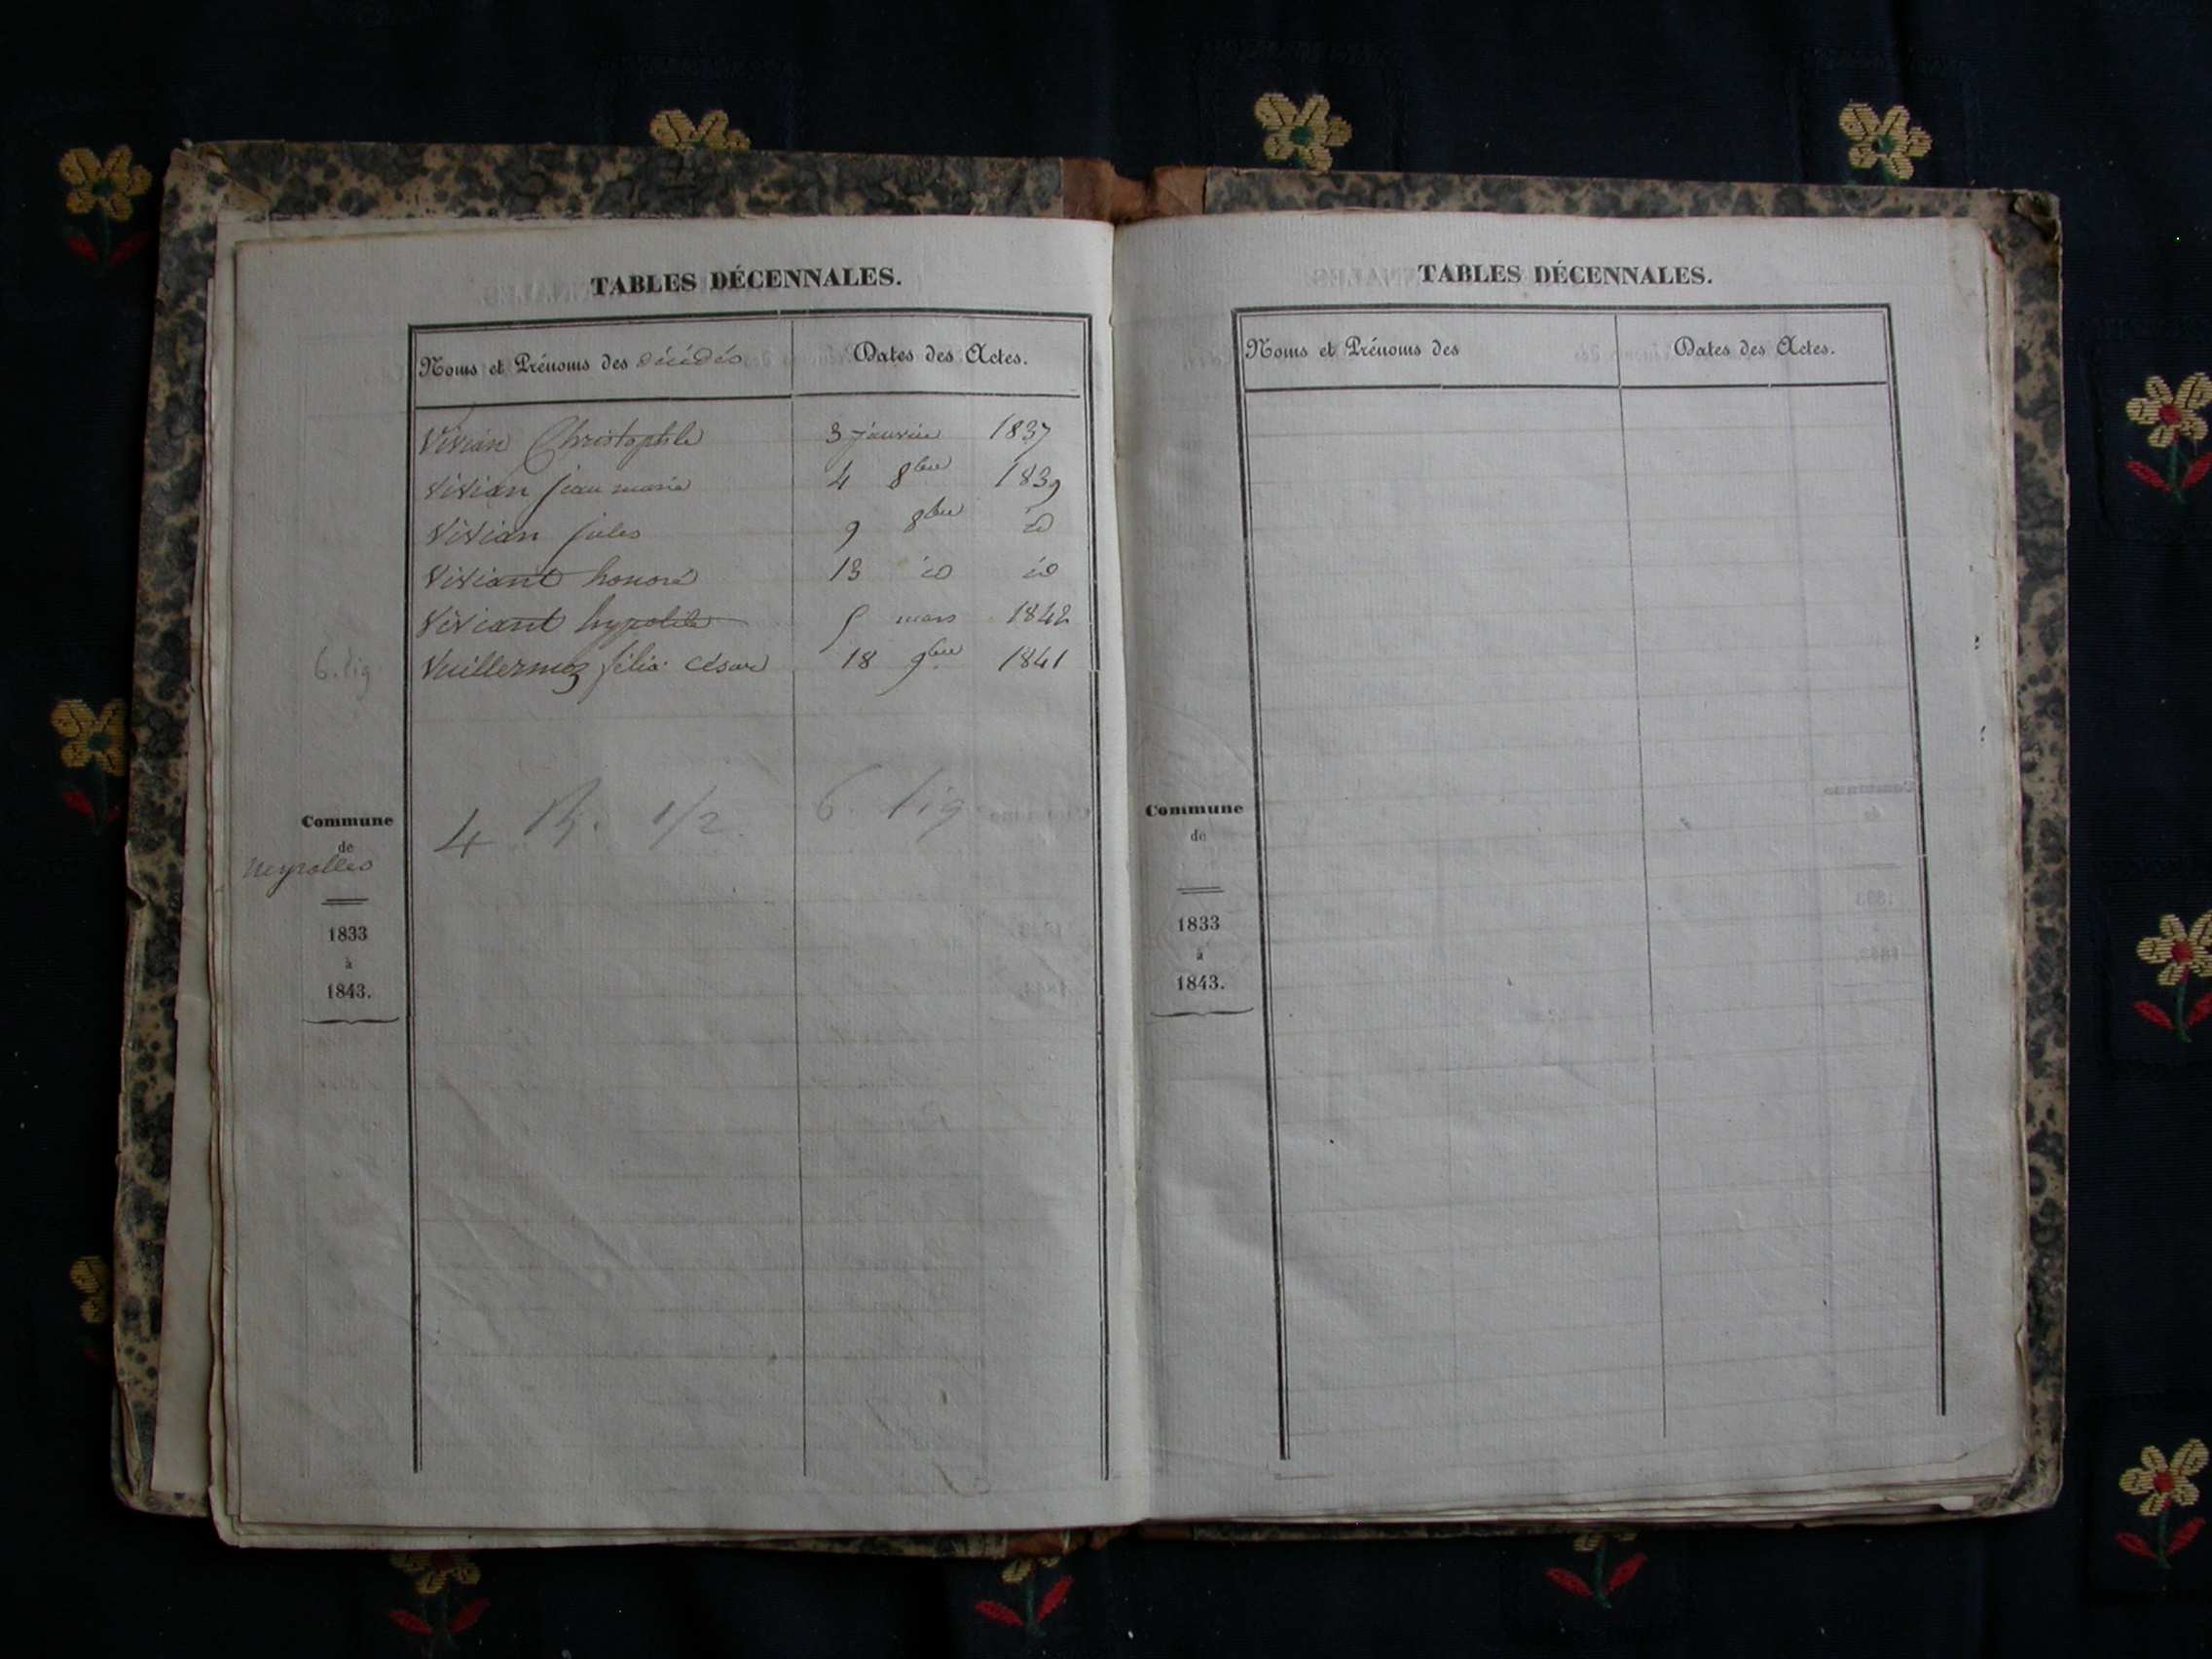 TABLES DÉCENNALES.
Noms et Prénoms des décédés Dates des Actes.
Vivian Christophle 3 janvier 1837
Vivian jean marie 4 8bre 1839
Vivian jules 9 8bre id
Viviant honoré 13 id id
Viviant hypolite 5 mars 1842
6. lig Vuillermoz félix césar 18 9bre 1841
4 1/2 6. lig
Commune
de
Neyrolles
1833
à
1843.
TABLES DÉCENNALES.
Noms et Prénoms des Dates des Actes.
Commune
de
1833
à
1843.